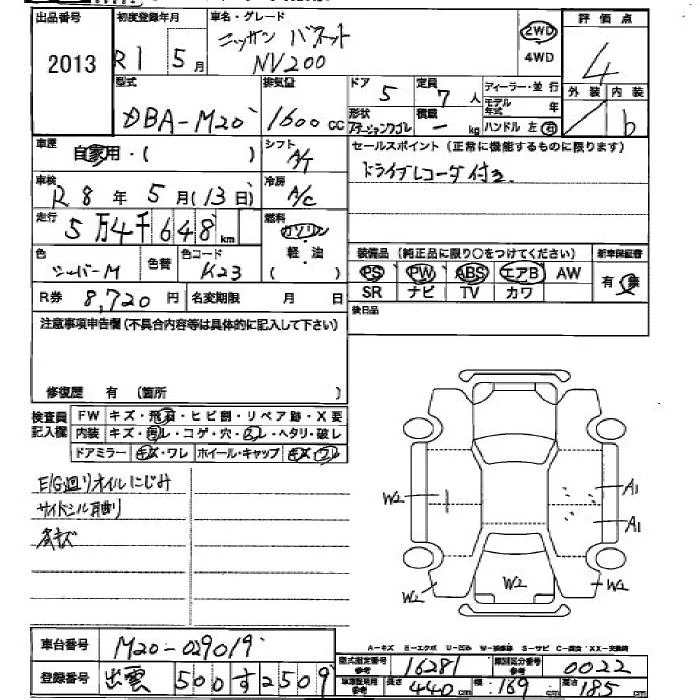 出品番号 初度登録年月 車名・グレード 2WD 評価点
2013 R1 5月 ニッサン バネット NV200 4WD 4
型式 排気量 ドア 定員 ディーラー・並行 外装 内装
DBA-M20 1600cc 5 7人 モデル年式 年 b
形状 ステーションワゴン 積載 ー kg ハンドル 左 右
車歴 自家用・( ) シフト A/T セールスポイント(正常に機能するものに限ります)
車検 R8年5月(13日) 冷房 A/C ドライブレコーダ付き
走行 5万4千648km 燃料 ガソリン
軽・油
( )
色 シーバーM 色替 色コード K23 装備品(純正品に限り○をつけてください) 新車保証書
PS PW ABS エアB AW 有・無
SR ナビ TV カワ
R券 8,720円 名変期限 月 日 後日品
注意事項申告欄(不具合内容等は具体的に記入して下さい)
修復歴 有 (箇所 )
検査員記入欄 FW キズ・飛石・ヒビ割・リペア跡・X変
内装 キズ・汚レ・コゲ・穴・スレ・ヘタリ・破レ
ドアミラー キズ・ワレ ホイール・キャップ キズ・ワレ
E/G廻りオイルにじみ
サイドシル 曲り
各キズ
W2 A1
A1
W2 W2 W2
A-キズ E-エクボ U-凹み W-補修跡 S-サビ C-腐食 XX-交換済
車台番号 M20-029019 型式指定番号 参考 16281 類別区分番号 参考 0022
登録番号 出雲 500す2509 車検証記載 参考 長さ 440cm 幅 169cm 高さ 185cm